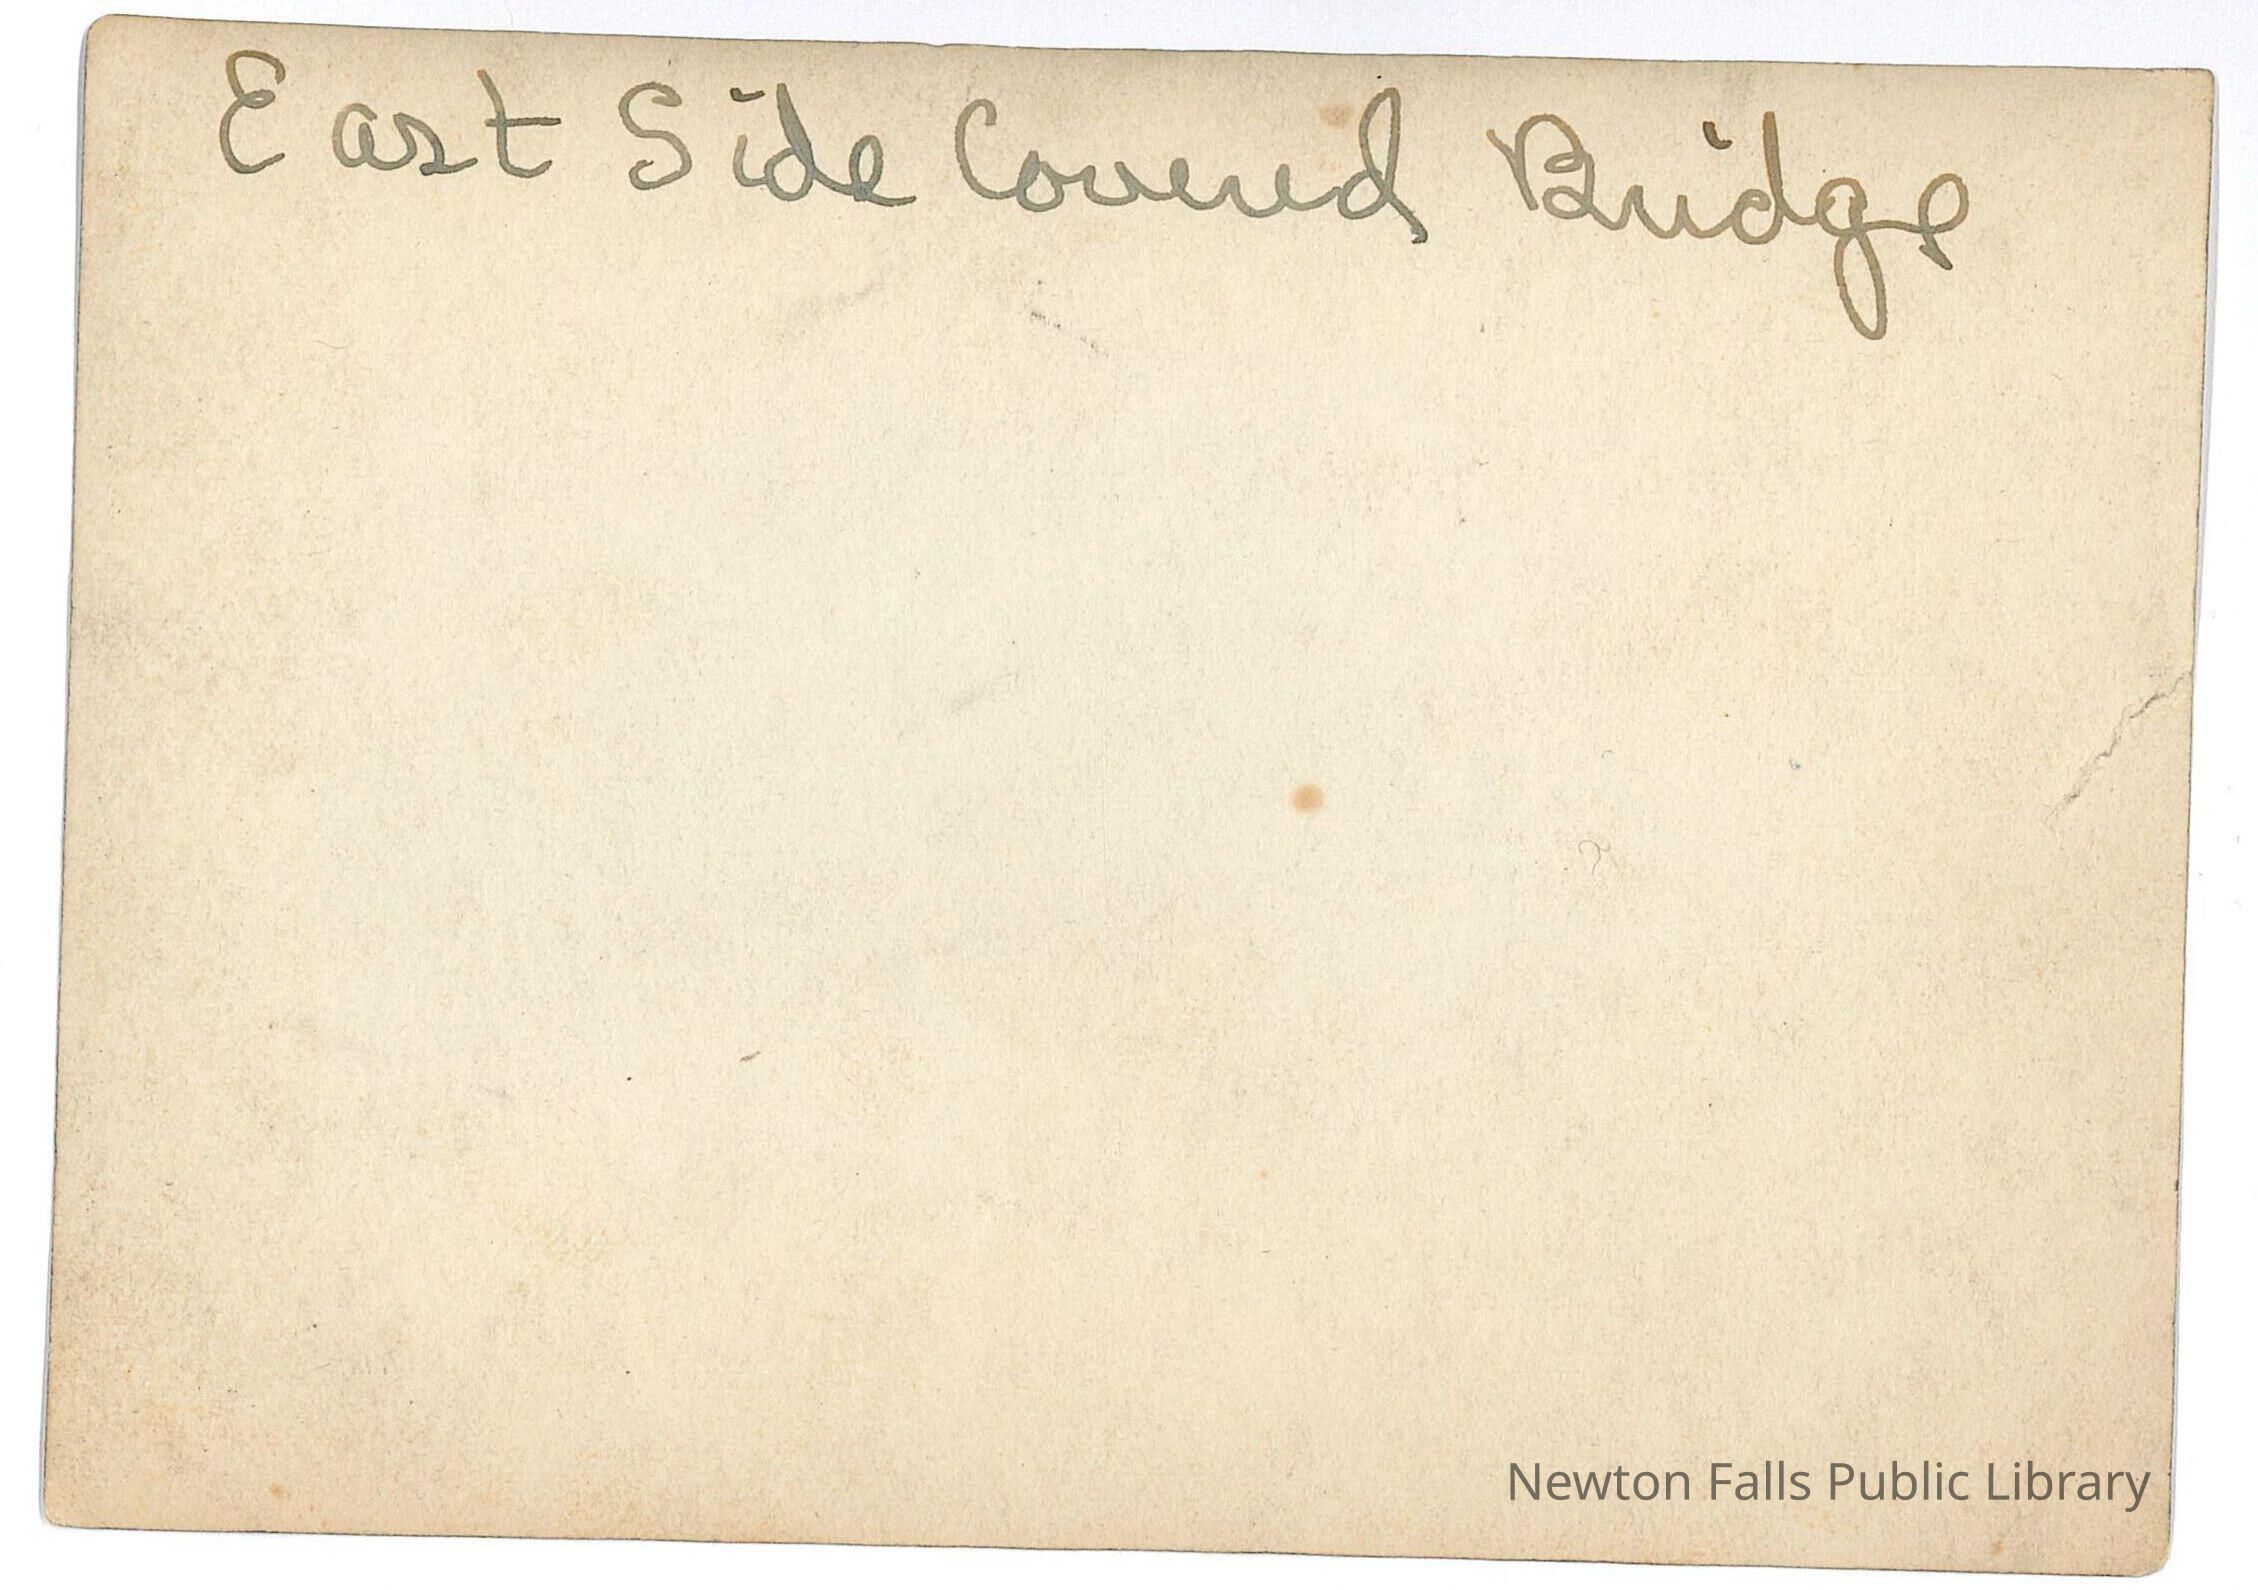 East Side Covered Bridge
Newton Falls Public Library